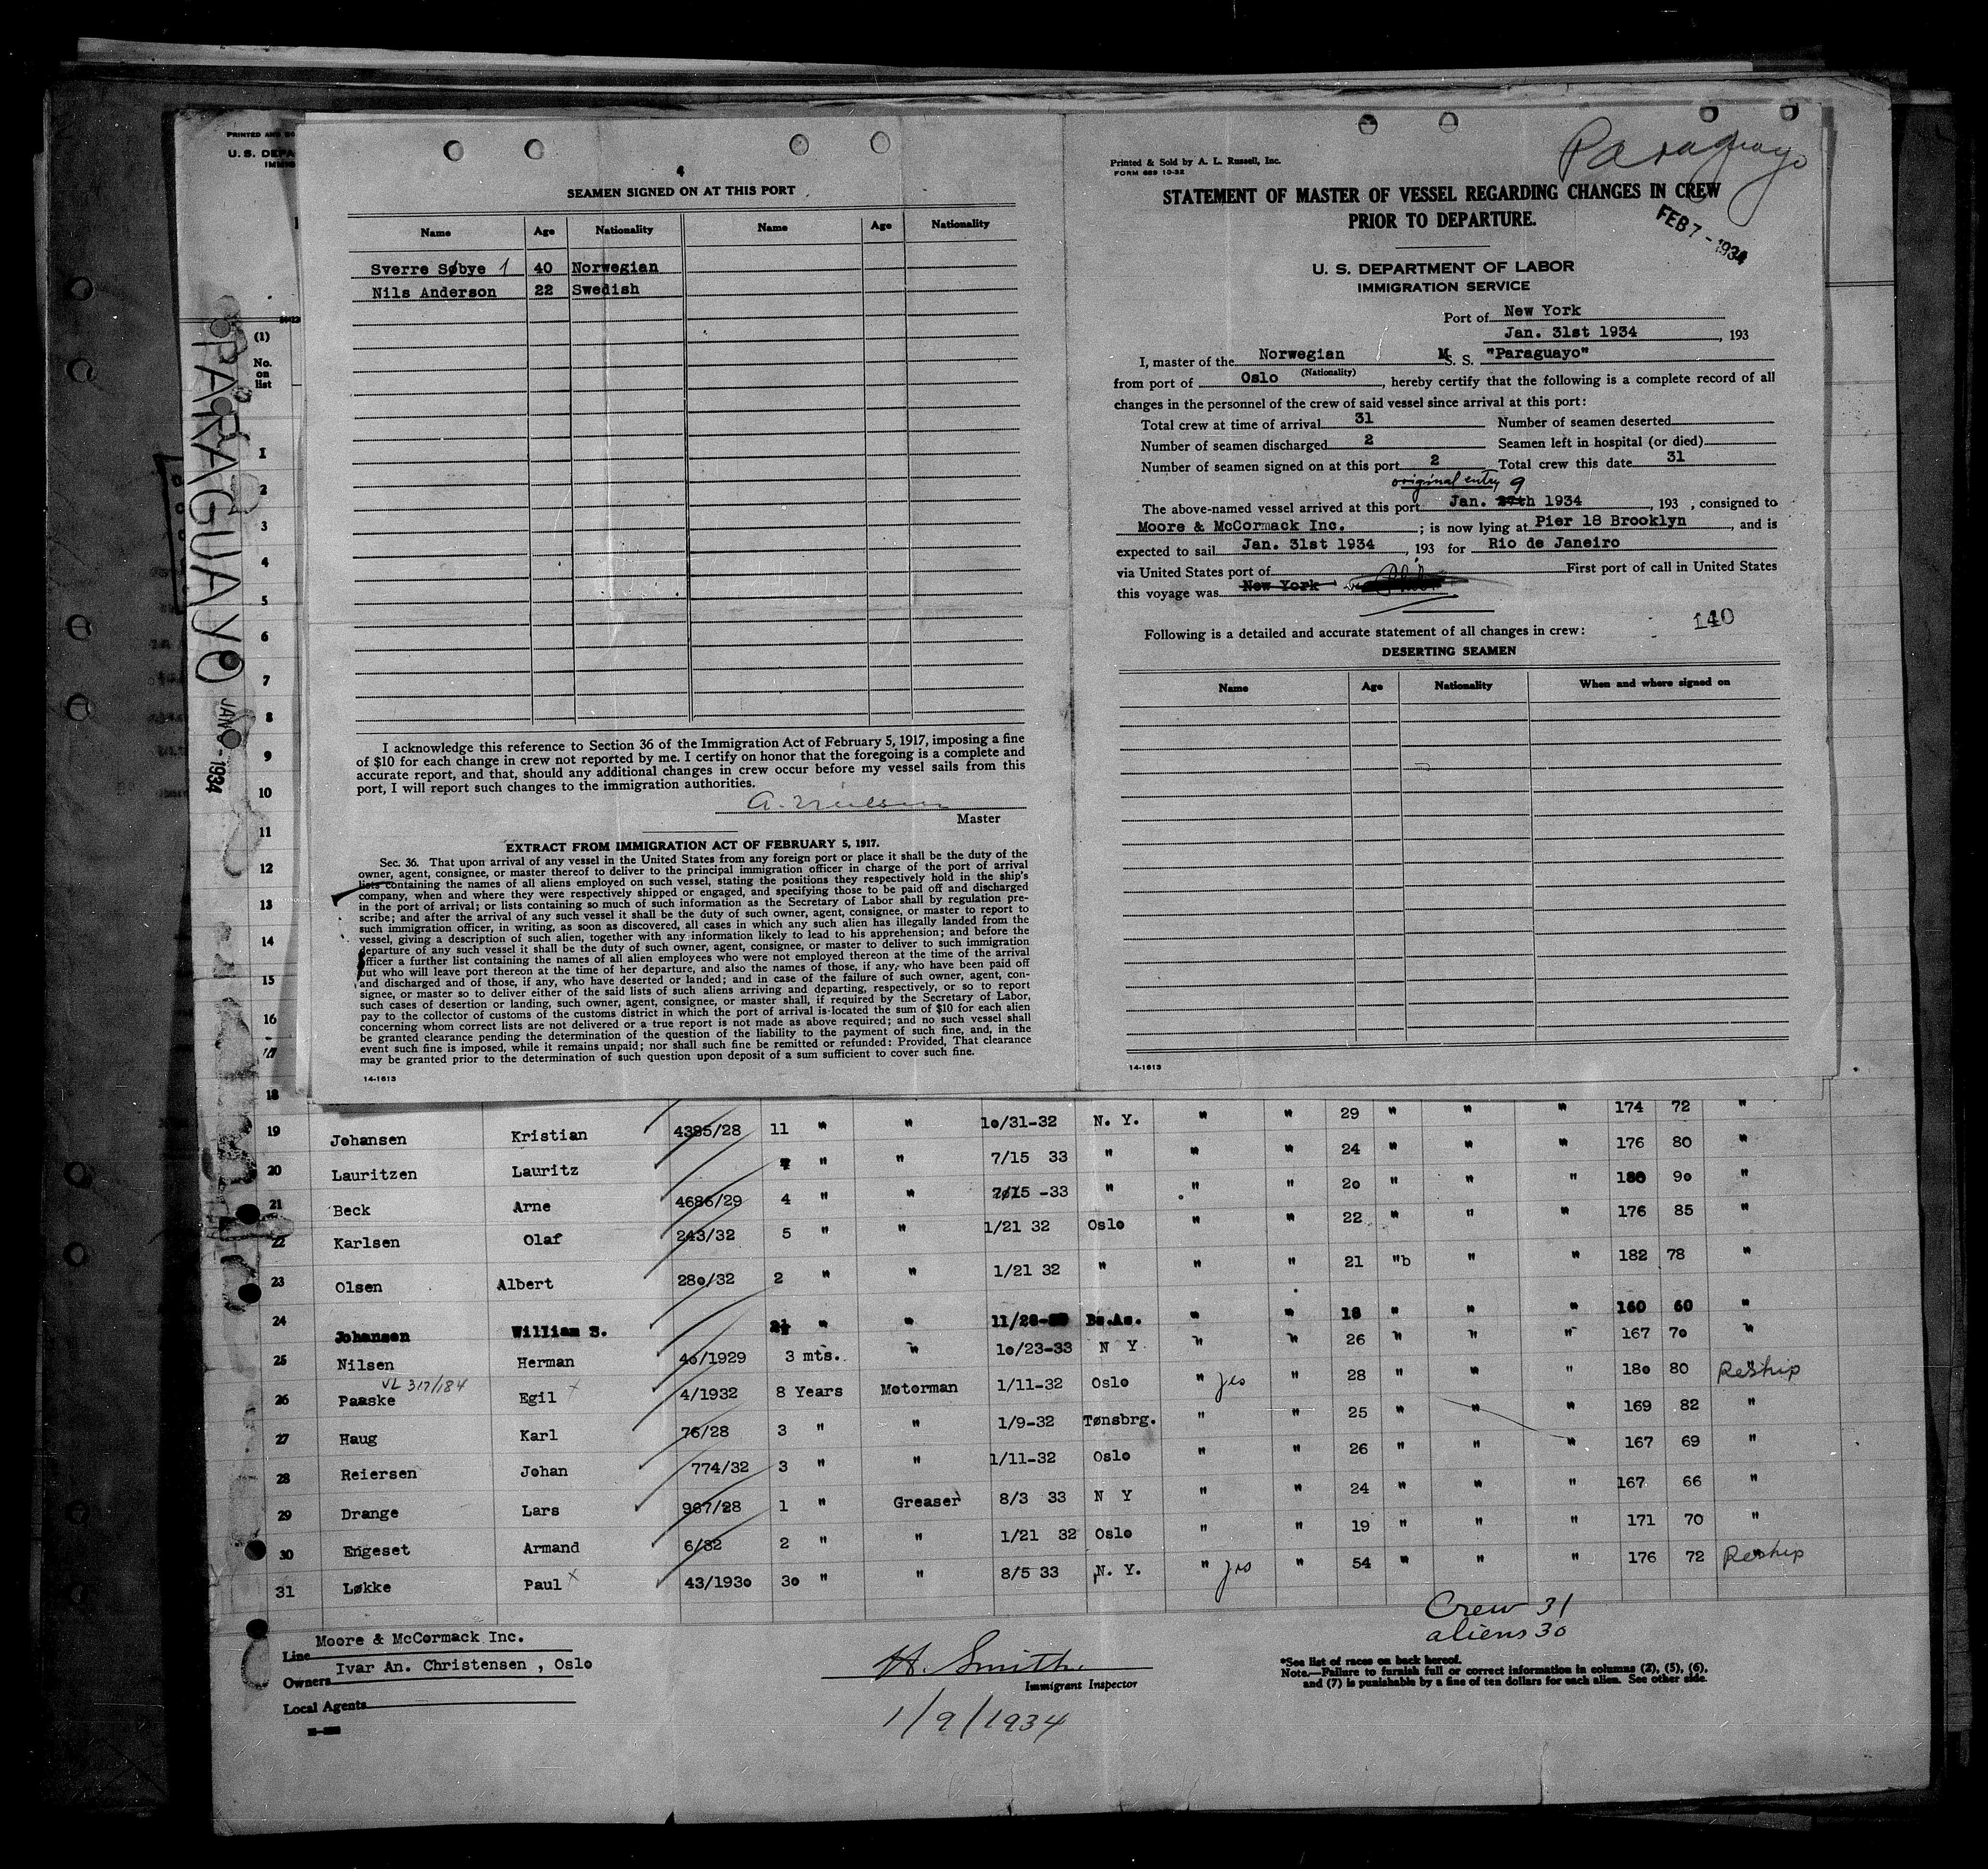 PRINTED AND
U. S. DEPA
(1)
No.
on
list
PARAGUAYO
1934
1
2
3
4
5
6
7
8
9
10
11
12
13
14
15
16
17
18
4
SEAMEN SIGNED ON AT THIS PORT
Name Age Nationality Name Age Nationality
Sverre Søbye 1 40 Norwegian
Nils Anderson 22 Swedish
I acknowledge this reference to Section 36 of the Immigration Act of February 5, 1917, imposing a fine
of $10 for each change in crew not reported by me. I certify on honor that the foregoing is a complete and
accurate report, and that, should any additional changes in crew occur before my vessel sails from this
port, I will report such changes to the immigration authorities.
Master
EXTRACT FROM IMMIGRATION ACT OF FEBRUARY 5, 1917.
Sec. 36. That upon arrival of any vessel in the United States from any foreign port or place it shall be the duty of the
owner, agent, consignee, or master thereof to deliver to the principal immigration officer in charge of the port of arrival
lists containing the names of all aliens employed on such vessel, stating the positions they respectively hold in the ship's
company, when and where they were respectively shipped or engaged, and specifying those to be paid off and discharged
in the port of arrival; or lists containing so much of such information as the Secretary of Labor shall by regulation pre-
scribe; and after the arrival of any such vessel it shall be the duty of such owner, agent, consignee, or master to report to
such immigration officer, in writing, as soon as discovered, all cases in which any such alien has illegally landed from the
vessel, giving a description of such alien, together with any information likely to lead to his apprehension; and before the
departure of any such vessel it shall be the duty of such owner, agent, consignee, or master to deliver to such immigration
officer a further list containing the names of all alien employees who were not employed thereon at the time of the arrival
but who will leave port thereon at the time of her departure, and also the names of those, if any, who have been paid off
and discharged and of those, if any, who have deserted or landed; and in case of the failure of such owner, agent, con-
signee, or master so to deliver either of the said lists of such aliens arriving and departing, respectively, or so to report
such cases of desertion or landing, such owner, agent, consignee, or master shall, if required by the Secretary of Labor,
pay to the collector of customs of the customs district in which the port of arrival is located the sum of $10 for each alien
concerning whom correct lists are not delivered or a true report is not made as above required; and no such vessel shall
be granted clearance pending the determination of the question of the liability to the payment of such fine, and, in the
event such fine is imposed, while it remains unpaid; nor shall such fine be remitted or refunded: Provided, That clearance
may be granted prior to the determination of such question upon deposit of a sum sufficient to cover such fine.
14-1613
Paraguayo
Printed & Sold by A. L. Russell, Inc.
FORM 689 10-32
STATEMENT OF MASTER OF VESSEL REGARDING CHANGES IN CREW
PRIOR TO DEPARTURE.
FEB 7 - 1934
U. S. DEPARTMENT OF LABOR
IMMIGRATION SERVICE
Port of New York
Jan. 31st 1934, 193
I, master of the Norwegian M S. S. "Paraguayo"
(Nationality)
from port of Oslo, hereby certify that the following is a complete record of all
changes in the personnel of the crew of said vessel since arrival at this port:
Total crew at time of arrival 31 Number of seamen deserted
Number of seamen discharged 2 Seamen left in hospital (or died)
Number of seamen signed on at this port 2 Total crew this date 31
original entry 9
The above-named vessel arrived at this port Jan. 27th 1934, 193 , consigned to
Moore & McCormack Inc. ; is now lying at Pier 18 Brooklyn, and is
expected to sail Jan. 31st 1934, 193 for Rio de Janeiro
via United States port of First port of call in United States
this voyage was New York
Following is a detailed and accurate statement of all changes in crew: 140
DESERTING SEAMEN
Name Age Nationality When and where signed on
14-1613
29 " " " 174 72 "
19 Johansen Kristian 4385/28 11 " " 10/31-32 N. Y. " " 24 " " " 176 80 "
20 Lauritzen Lauritz " " 7/15 33 " " " 20 " " " 180 90 "
21 Beck Arne 4686/29 4 " " 7/15 -33 " " " 22 " " " 176 85 "
22 Karlsen Olaf 243/32 5 " " 1/21 32 Oslo " " 21 "b " " 182 78 "
23 Olsen Albert 280/32 2 " " 1/21 32 "
24 Johansen William S. 2½ " " Bs.As. " " 18 " " " 160 60 "
25 Nilsen Herman 40/1929 3 mts. " 10/23-33 N Y " " 26 " " " 167 70 "
VL 317/184
26 Paaske Egil x 4/1932 8 Years Motorman 1/11-32 Oslo " yes " 28 " " " 180 80 Reship
27 Haug Karl 76/28 3 " " 1/9-32 Tønsbrg. " " 25 " " " 169 82 "
28 Reiersen Johan 774/32 3 " " 1/11-32 Oslo " " 26 " " " 167 69 "
29 Drange Lars 967/28 1 " Greaser 8/3 33 N Y " " 24 " " " 167 66 "
30 Engeset Armand 6/32 2 " " 1/21 32 Oslo " " 19 " " " 171 70 "
31 Løkke Paul x 43/1930 30 " " 8/5 33 N. Y. " yes " 54 " " " 176 72 Reship
Crew 31
aliens 30
Line Moore & McCormack Inc.
Owners Ivar An. Christensen , Oslo
Local Agents
H. Smith
Immigrant Inspector
1/9/1934
*See list of races on back hereof.
Note.—Failure to furnish full or correct information in columns (2), (5), (6),
and (7) is punishable by a fine of ten dollars for each alien. See other side.